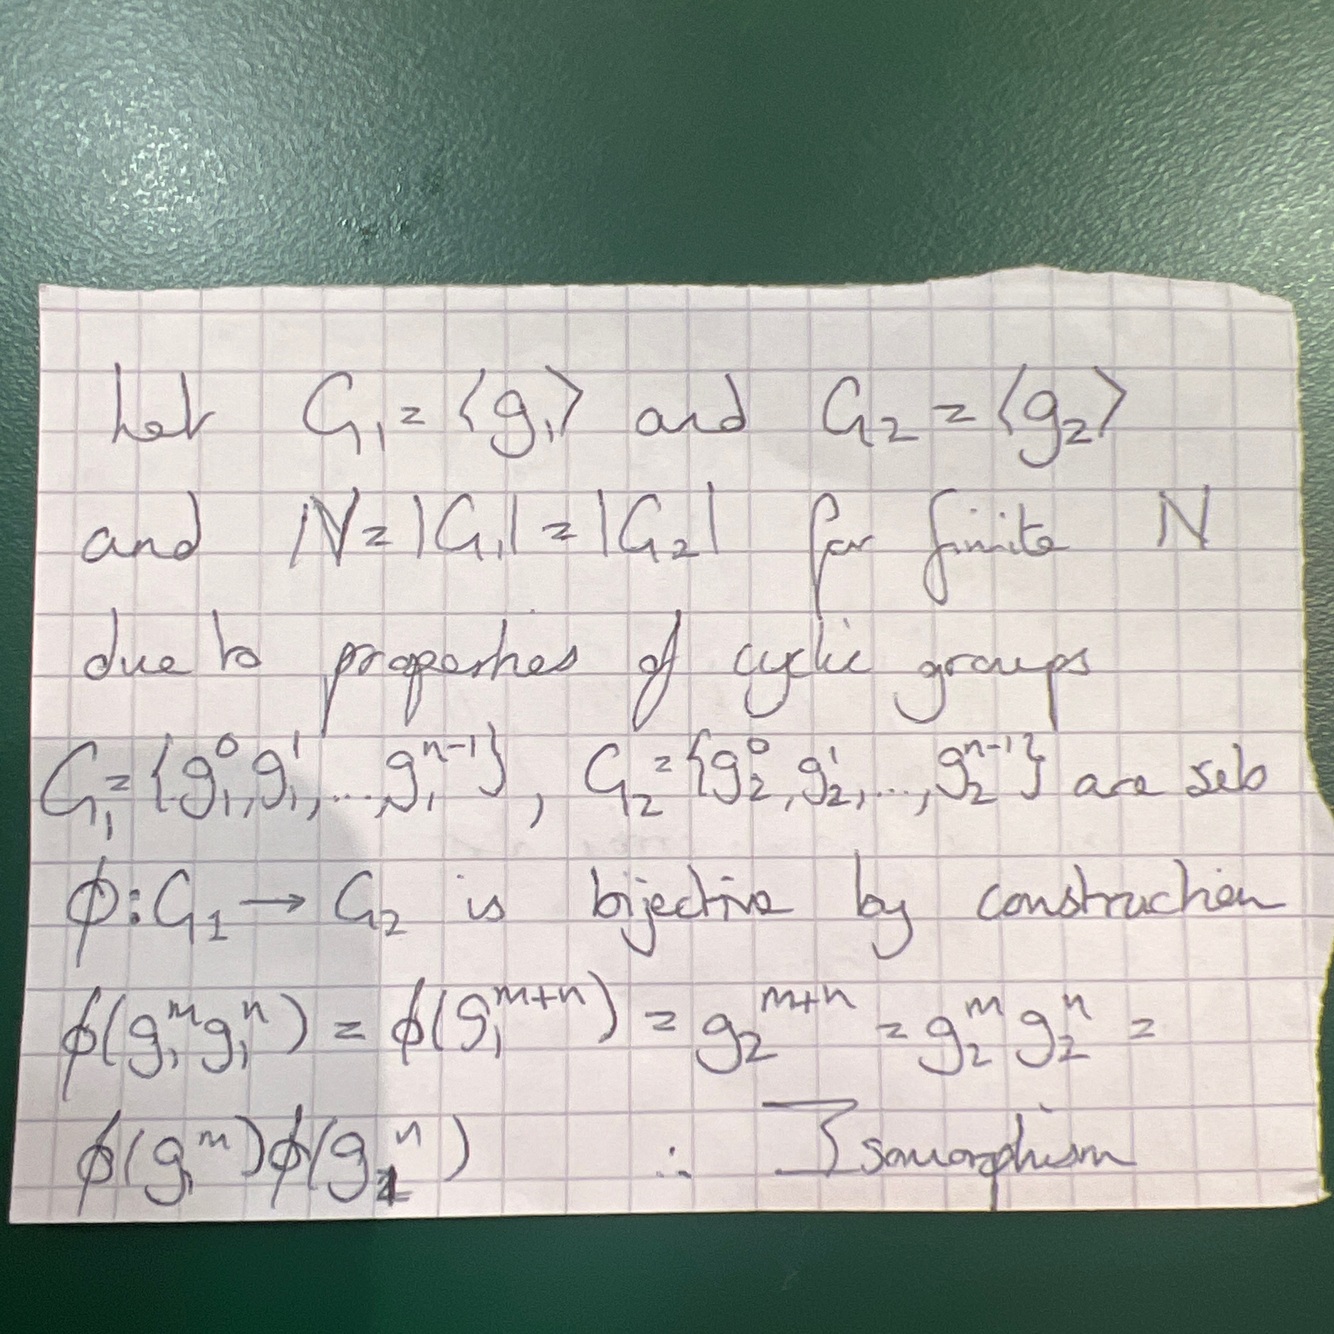 Let G₁ = ⟨g₁⟩ and G₂ = ⟨g₂⟩
and N = |G₁| = |G₂| for finite N
due to properties of cyclic groups
G₁ = {g₁⁰, g₁¹, ..., g₁ⁿ⁻¹}, G₂ = {g₂⁰, g₂¹, ..., g₂ⁿ⁻¹} are sets
ϕ: G₁ → G₂ is bijective by construction
ϕ(g₁ᵐ g₁ⁿ) = ϕ(g₁ᵐ⁺ⁿ) = g₂ᵐ⁺ⁿ = g₂ᵐ g₂ⁿ =
ϕ(g₁ᵐ)ϕ(g₁ⁿ) ∴ Isomorphism